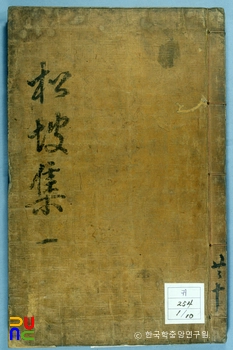 松坡集 一
共十
귀
254
1/10
© 한국학중앙연구원